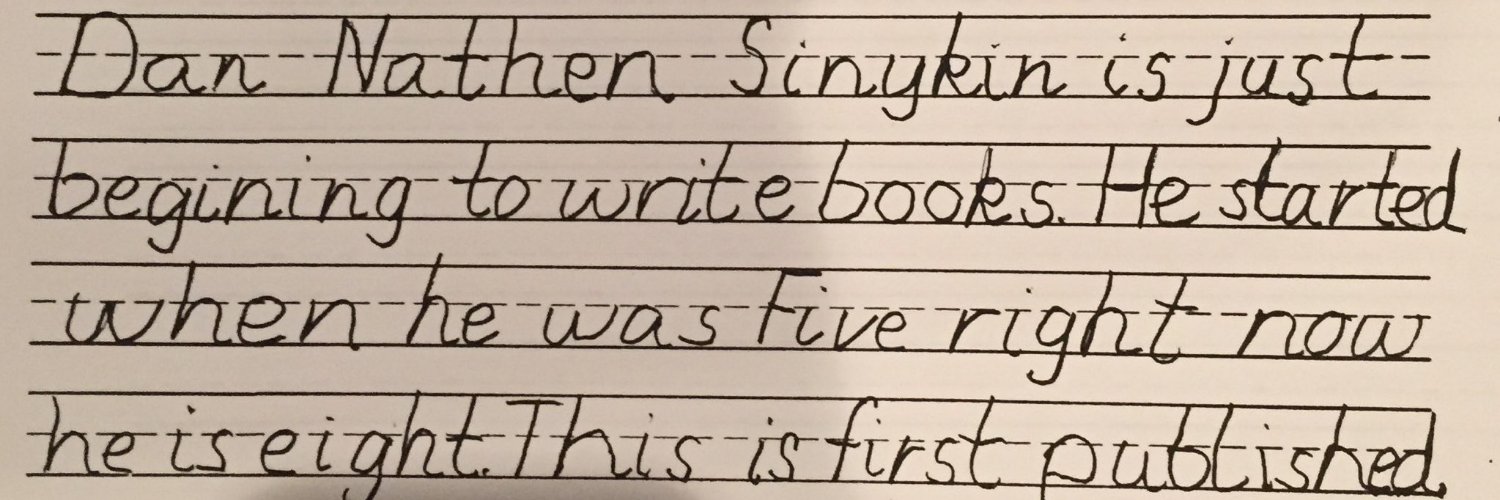 Dan Nathen Sinykin is just
begining to write books. He started
when he was five right now
he is eight. This is first published.